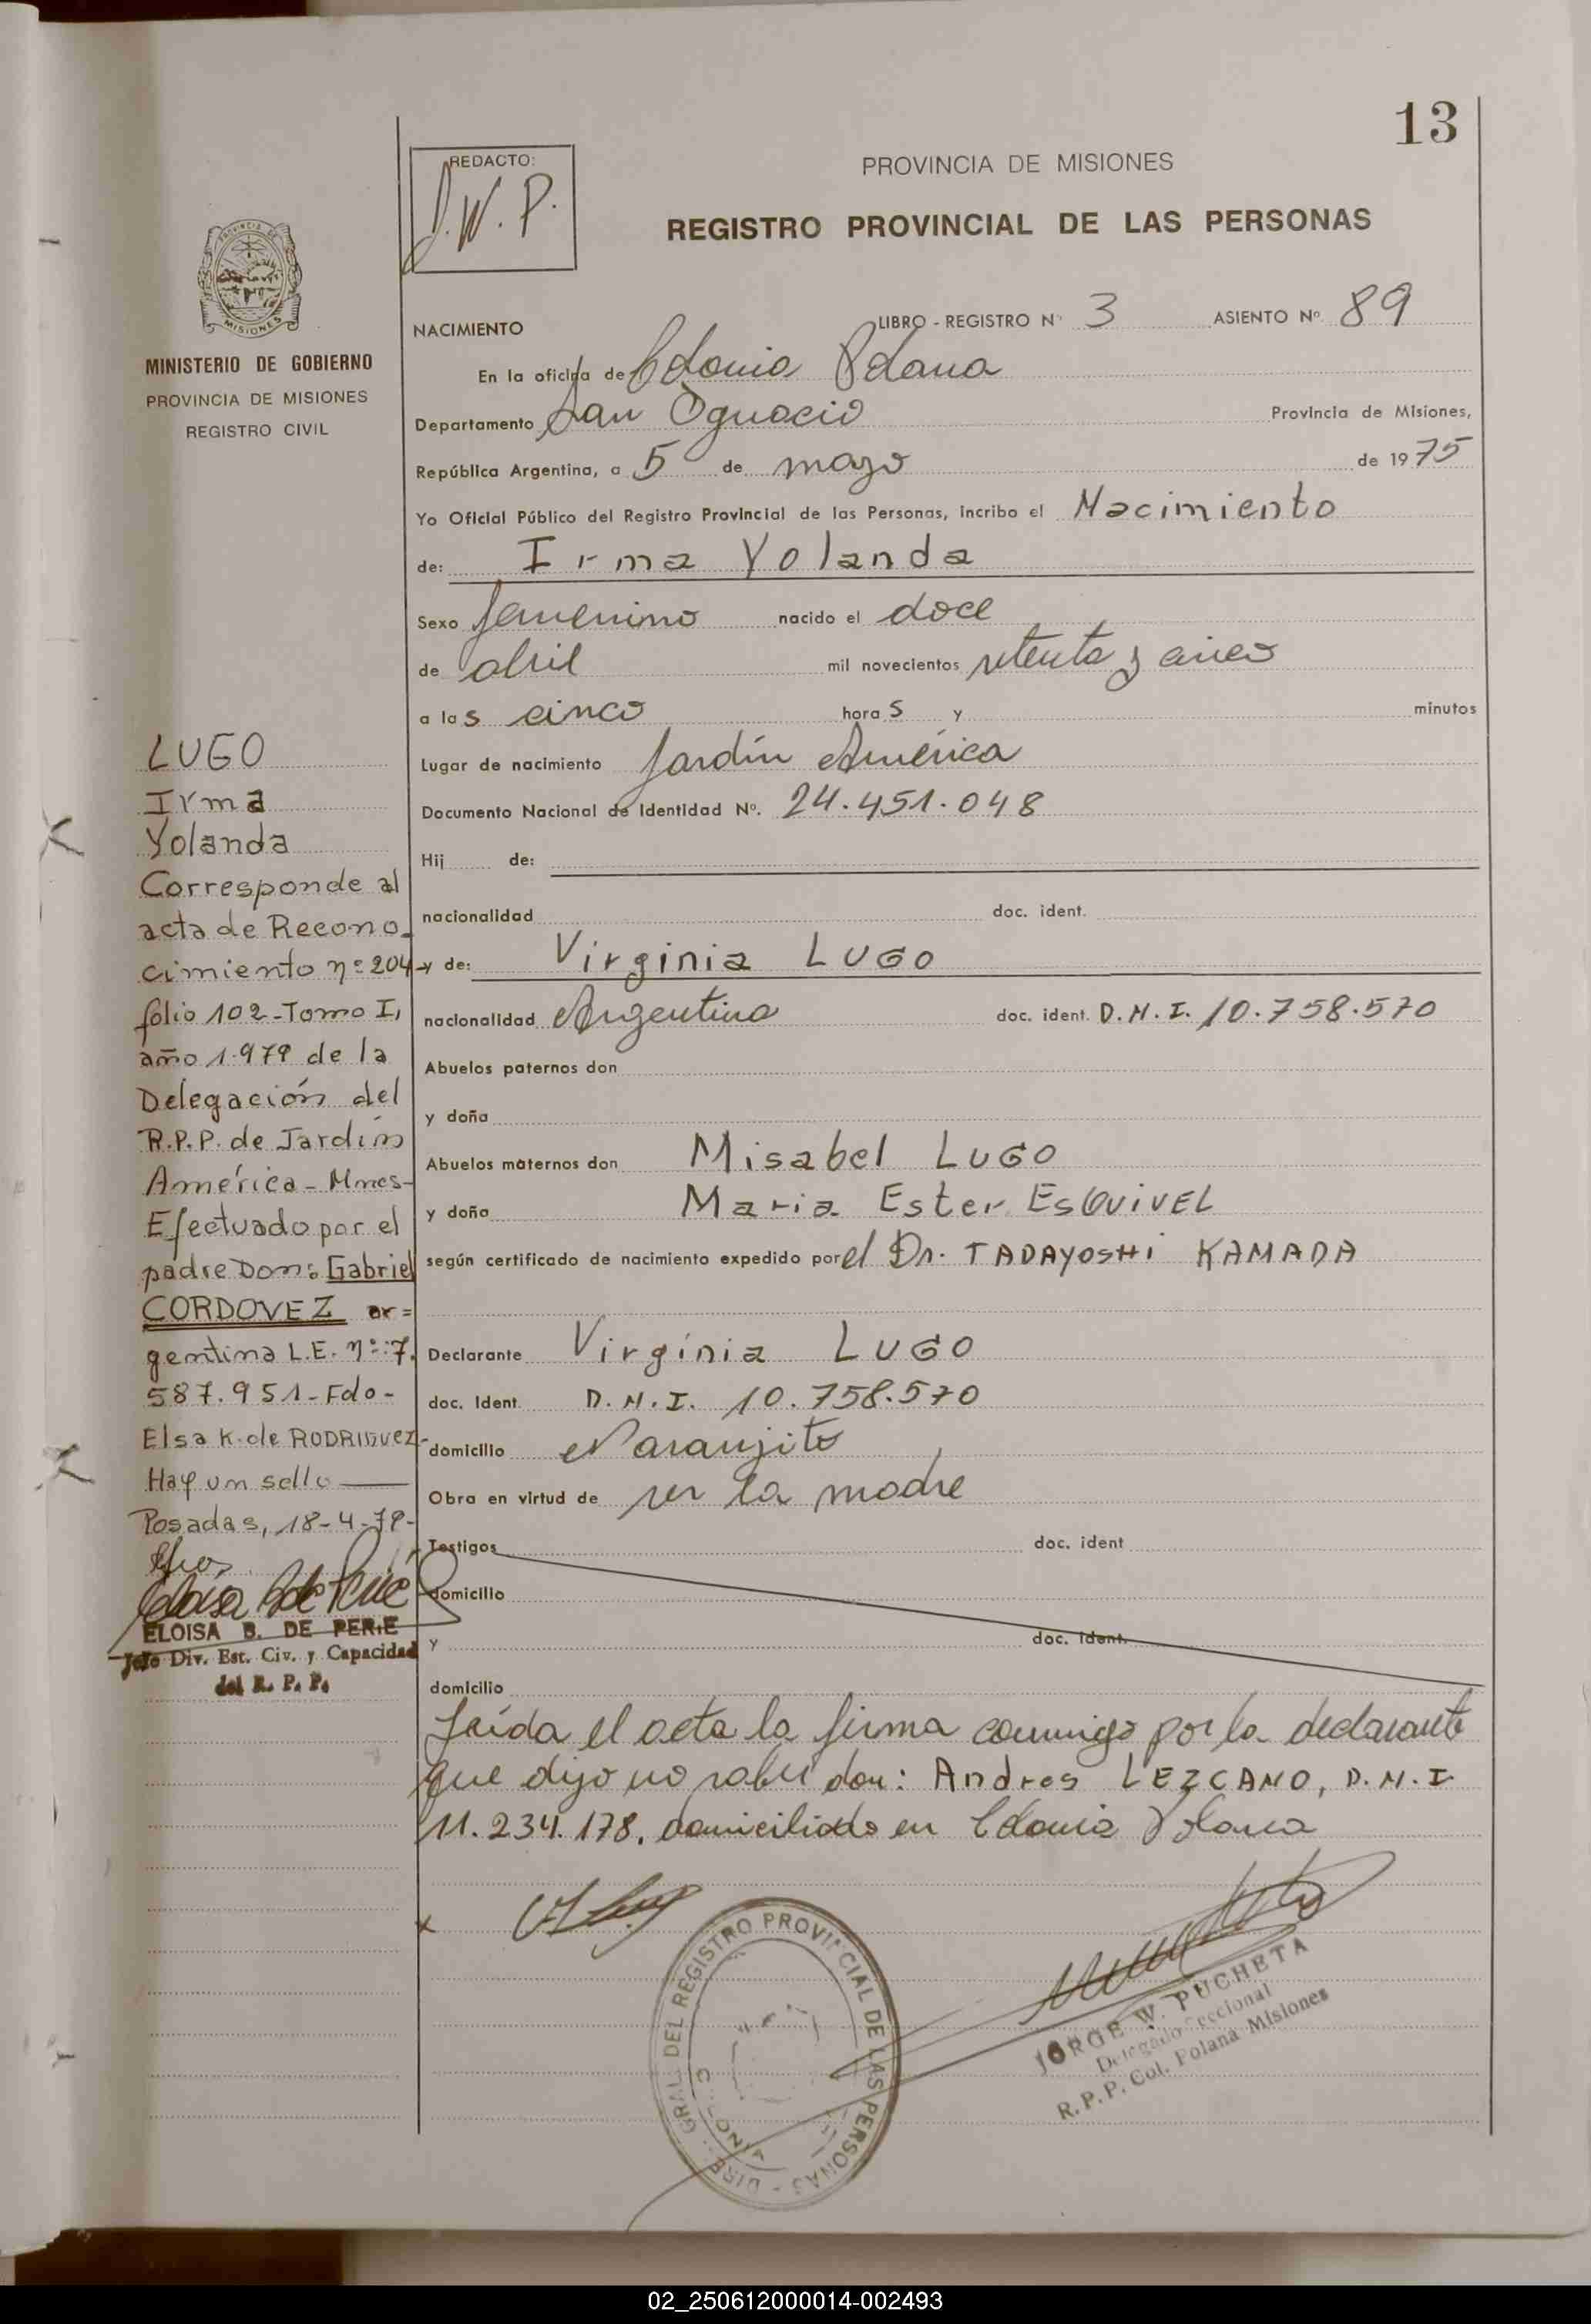 13
REDACTO:
J.W.P.
PROVINCIA DE MISIONES
REGISTRO PROVINCIAL DE LAS PERSONAS
MISIONES
MINISTERIO DE GOBIERNO
PROVINCIA DE MISIONES
REGISTRO CIVIL
NACIMIENTO
LIBRO - REGISTRO Nº 3 ASIENTO Nº 89
En la oficina de Colonia Polana
Departamento San Ignacio Provincia de Misiones,
República Argentina, a 5 de mayo de 1975
Yo Oficial Público del Registro Provincial de las Personas, incribo el Nacimiento
de: Irma Yolanda
Sexo femenino nacido el doce
de abril mil novecientos setenta y cinco
a las cinco horas y minutos
Lugar de nacimiento Jardín América
Documento Nacional de Identidad Nº. 24.451.048
Hij de:
nacionalidad doc. ident.
y de: Virginia LUGO
nacionalidad Argentina doc. ident. D.N.I. 10.758.570
Abuelos paternos don
y doña
Abuelos maternos don Misabel LUGO
y doña Maria Ester ESQUIVEL
según certificado de nacimiento expedido por el Dr. TADAYOSHI KAMADA
Declarante Virginia LUGO
doc. Ident. D.N.I. 10.758.570
domicilio Naranjito
Obra en virtud de ser la madre
Testigos doc. ident
domicilio
y doc. ident.
domicilio
Leída el acta la firma conmigo por la declarante
que dijo no saber don: Andres LEZCANO, D.N.I.
11.234.178, domiciliado en Colonia Polana
LUGO
Irma
Yolanda
Corresponde al
acta de Recono-
cimiento nº 204
folio 102-Tomo I,
año 1.979 de la
Delegación del
R.P.P. de Jardín
América - Mnes-
Efectuado por el
padre Don: Gabriel
CORDOVEZ ar=
gentino L.E. nº: 7.
587.951-Fdo-
Elsa K. de RODRIGUEZ-
Hay un sello
Posadas, 18-4-79-
ELOISA B. DE PERIE
Jefe Div. Est. Civ. y Capacidad
del R. P. P.
x
DIRE GRAL. DEL REGISTRO PROVINCIAL DE LAS PERSONAS
JORGE W. PUCHETA
Delegado Seccional
R.P.P. Col. Polana Misiones
02_250612000014-002493